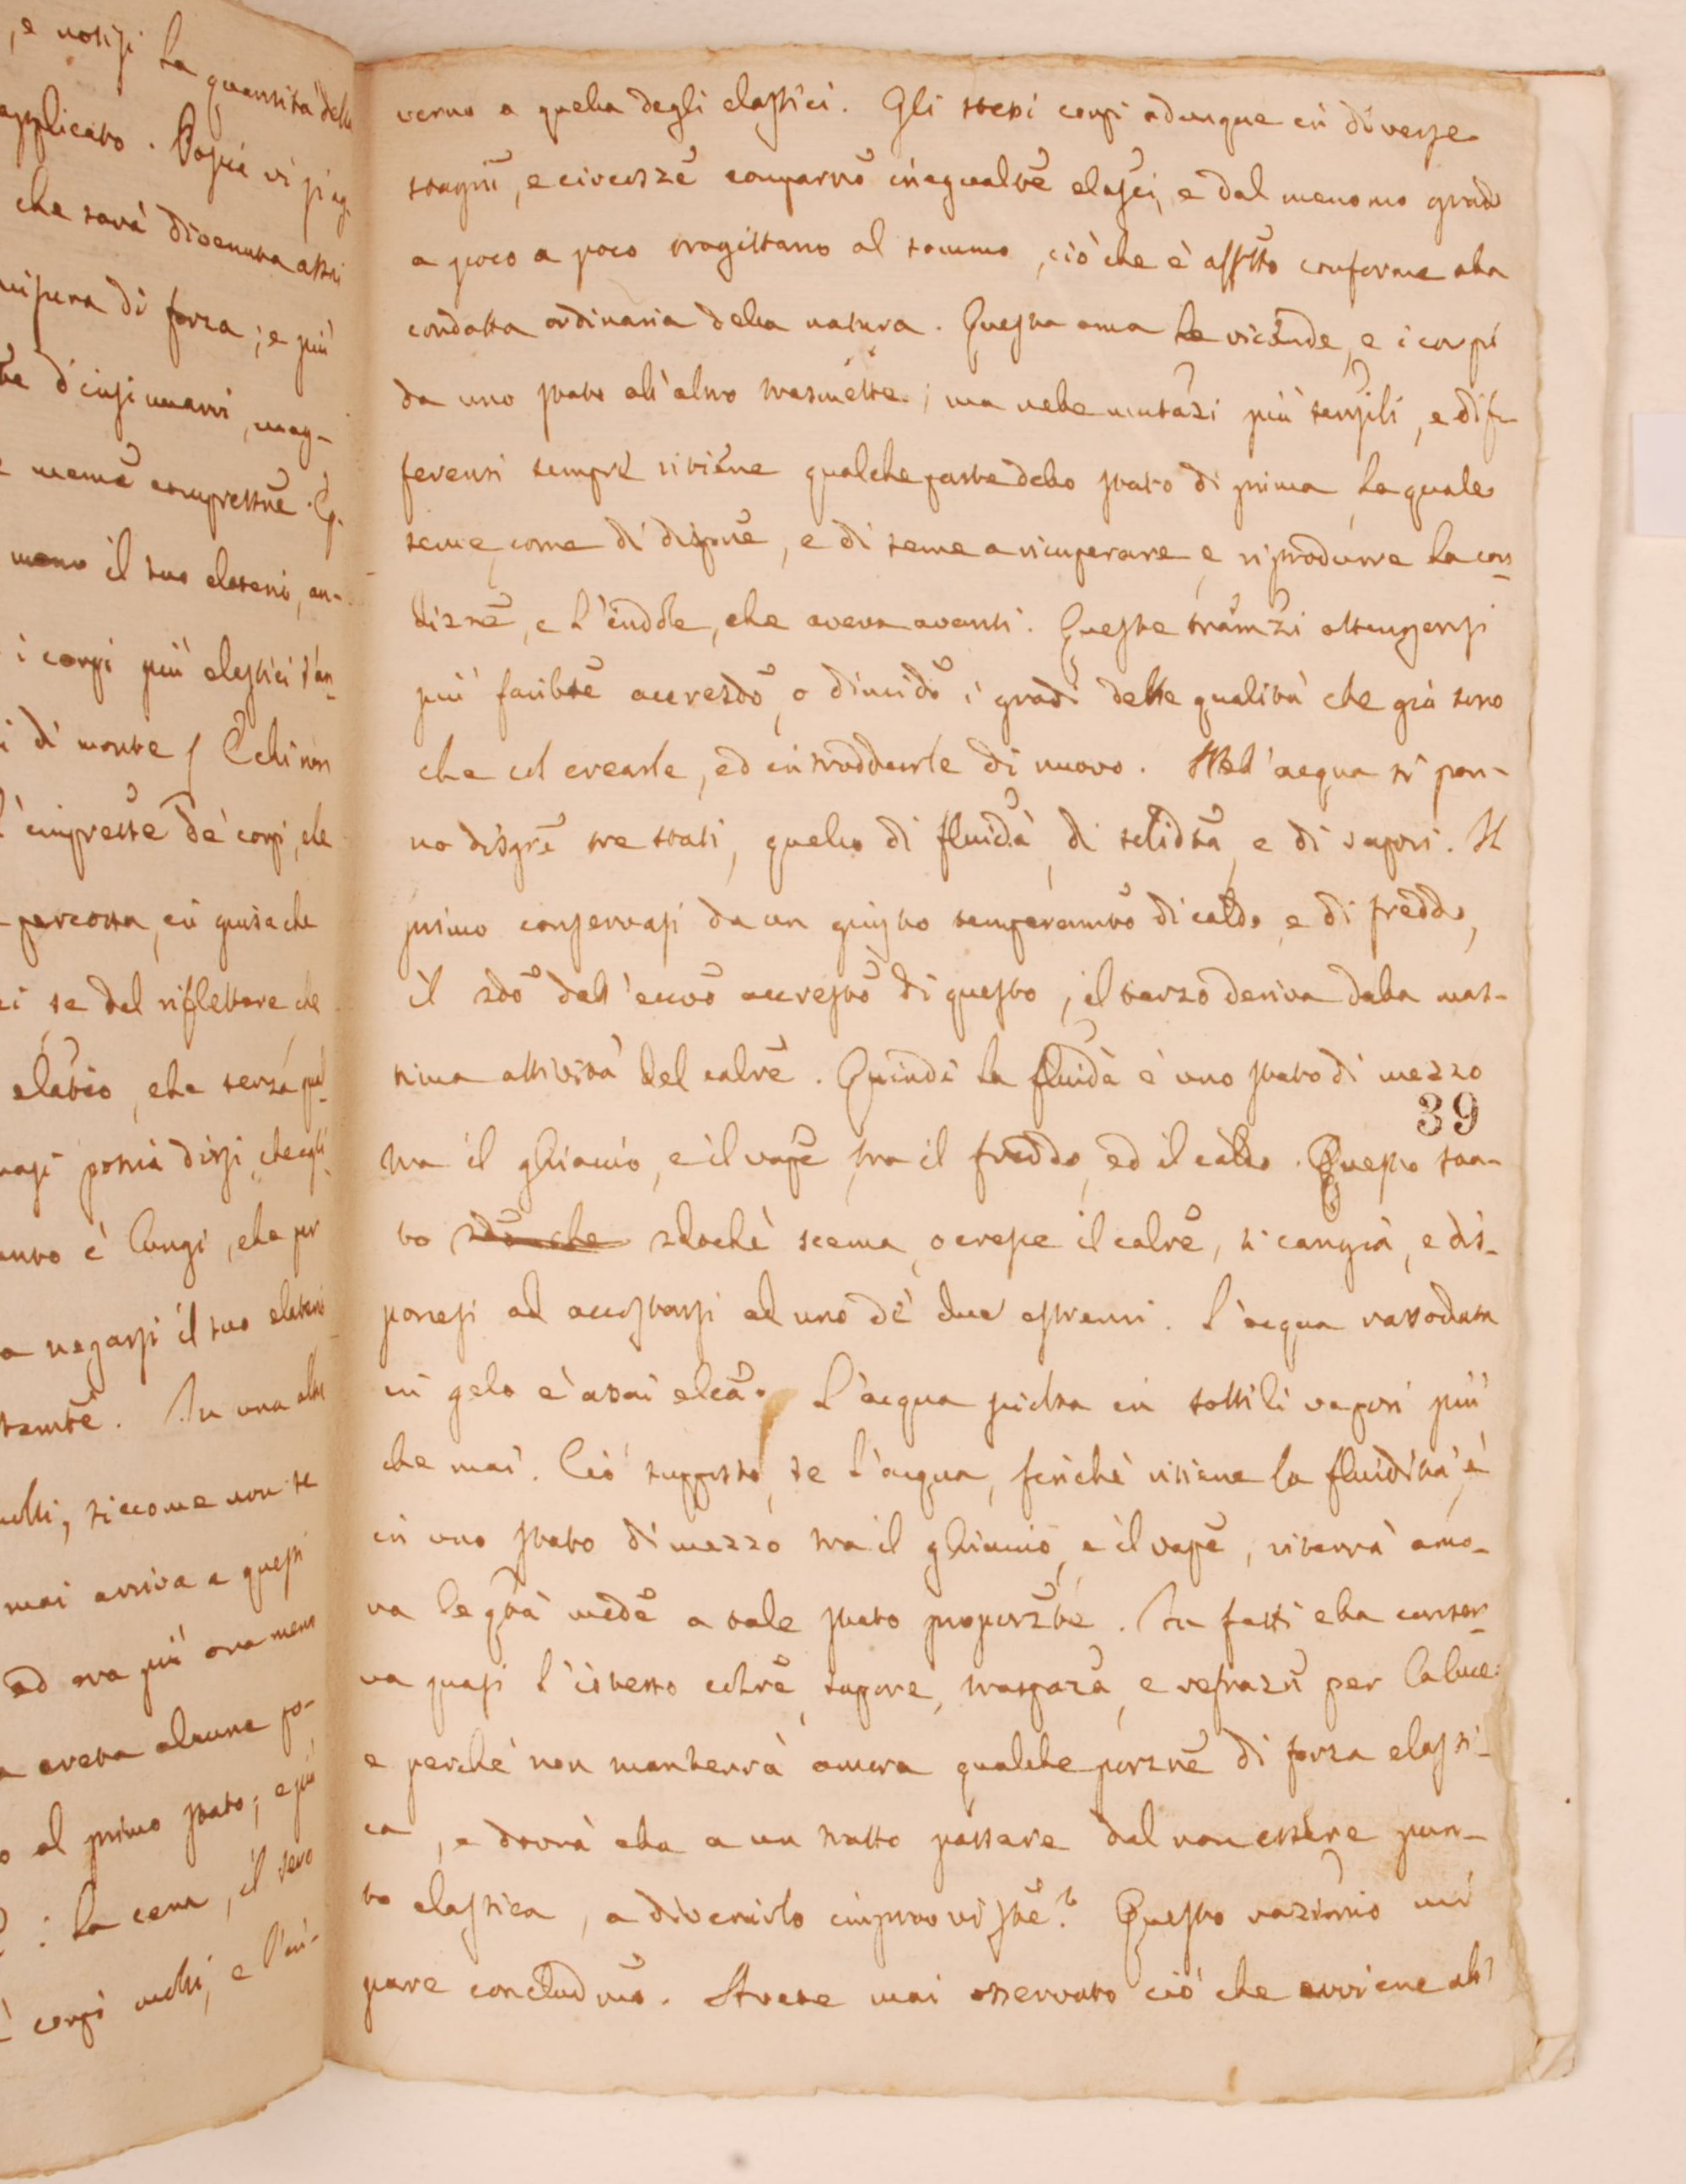 , e notisi la quantità della
applicato. Poscia vi si ag-
che sarà divenuta assai
misura di forza; e più
d'insinuarvi, mag-
compressne.
meno il suo elaterio, an-
i corpi più elastici s'an-
di monte
l'impressne de' corpi, che
percossa, in guisa che
se dal riflettere che
elatio, che senza
potria dirsi, che egli
è lungi, che per
a negarsi il suo elaterio
In una altra
molli, siccome non se
mai arriva a questi
ed ora più ora meno
aveva alcuna po-
al primo stato; e più
: la cera, il sevo
corpi molli, e l'in-
verno a quella degli elastici. Gli stessi corpi adunque in diverse
stagni, e circostze compariño inegualtẽ elasci, e dal menomo grado
a poco a poco tragittano al sommo, ciò che è affatto conforme alla
condotta ordinaria della natura. Questa ama le vicende, e i corpi
da uno stato all'altro trasmette; ma nelle mutazi più sensibili, e dif-
ferenti sempre ritiene qualche parte dello stato di prima la quale
serve come di dispne, e di seme a ricuperare, e riprodurre la con-
dizne, e l'indole, che aveva avanti. Queste tramzi ottengonsi
più facilte accresdo, o dimidõ i gradi delle qualità che già sono
che col crearle, ed introddurle di nuovo. Nell'acqua si pon-
no disgre tre stati, quello di fluidà, di solidtà, e di vapori. Il
primo conservasi da un giusto temperamto di caldo, e di freddo,
il 2do dall'eccvo accresto di questo, il terzo deriva dalla mas-
sima attività del calre. Quindi la fluidà è uno stato di mezzo
39
tra il ghiaccio, e il vape, tra il freddo, ed il caldo. Questo sta-
to 2do che 2dochè scema, o cresce il calre, si cangia, e dis-
ponesi ad accostarsi ad uno de' due estremi. L'acqua rassodata
in gelo è assai elca. L'acqua sciolta in sottili vapori più
che mai. Ciò supposto, se l'acqua, finchè ritiene la fluidità, è
in uno stato di mezzo tra il ghiaccio, e il vape, riterrà anco-
ra le qtà mede a tale stato proporzte. In fatti ella conser-
va quasi l'istesso colre, sapore, traspaza, e refrazn per la luce:
e perchè non manterrà ancora qualche porzne di forza elasti-
ca, e dovrà ella a un tratto passare dal non essere pun-
to elastica, a divenirlo improvviste? Questo raziocinio mi
pare concludnte. Avete mai osservato ciò che avviene all'